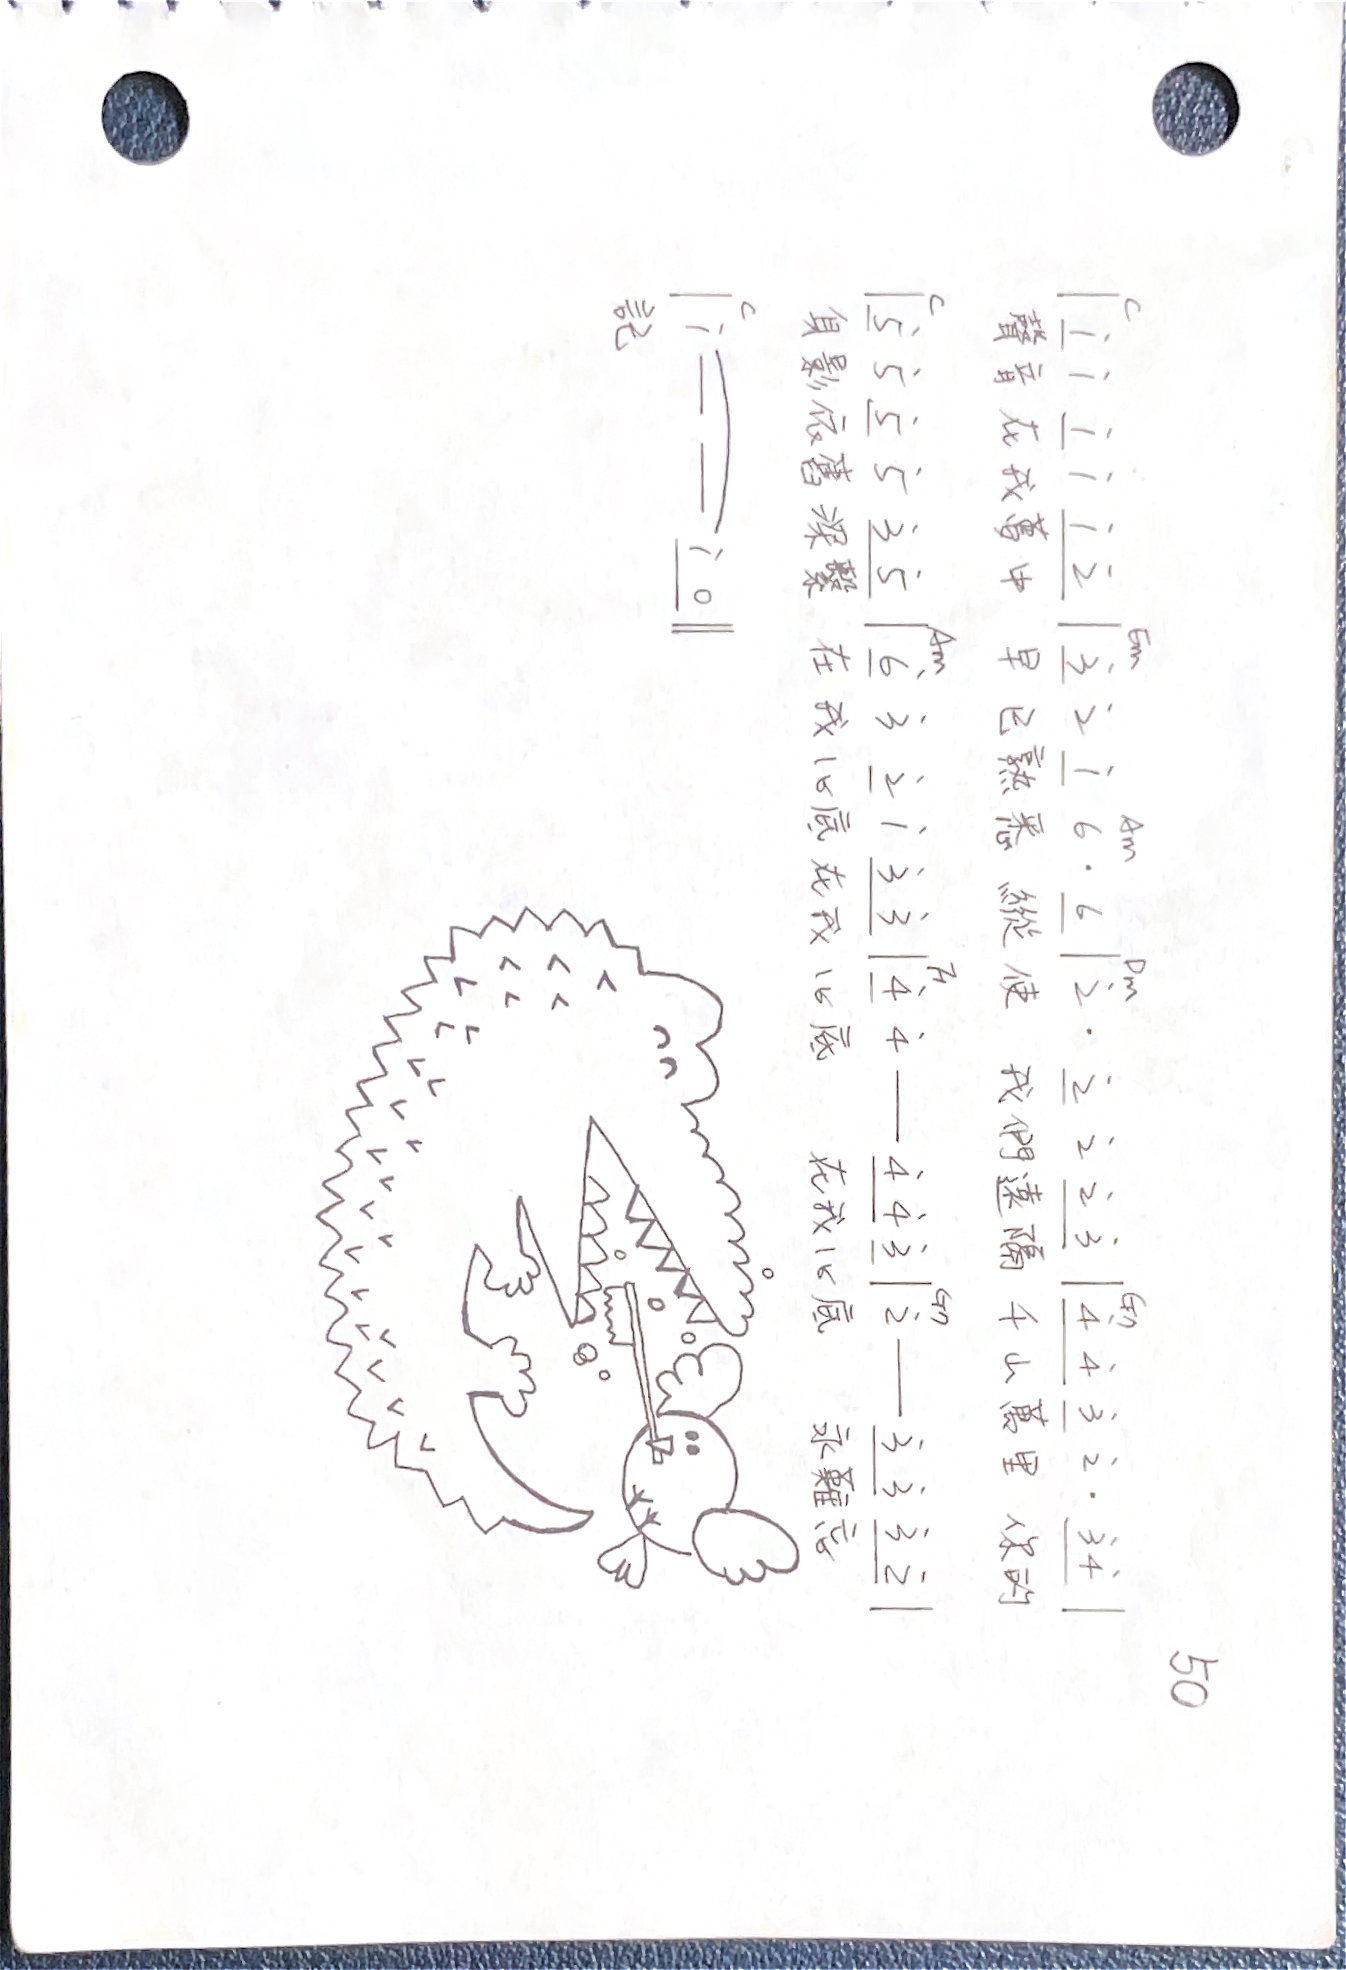 50
C Em Am Dm G7
| i i i i i 2̇ | 3̇ 2̇ i 6 · 6 | 2̇ · 2̇ 2̇ 2̇ 3̇ | 4̇ 4̇ 3̇ 2̇ · 3̇ 4̇ |
聲音在我夢中 早已熟悉 縱使 我們遠隔 千山萬里 你的
C Am F G7
| 5̇ 5̇ 5̇ 5̇ 3̇ 5̇ | 6̇ 3̇ 2̇ i 3̇ 3̇ | 4̇ 4̇ — 4̇ 4̇ 3̇ | 2̇ — 3̇ 3̇ 3̇ 2̇ |
身影依舊深繫 在我心底在我心底 在我心底 永難忘
C
| i — — i 0 ||
記